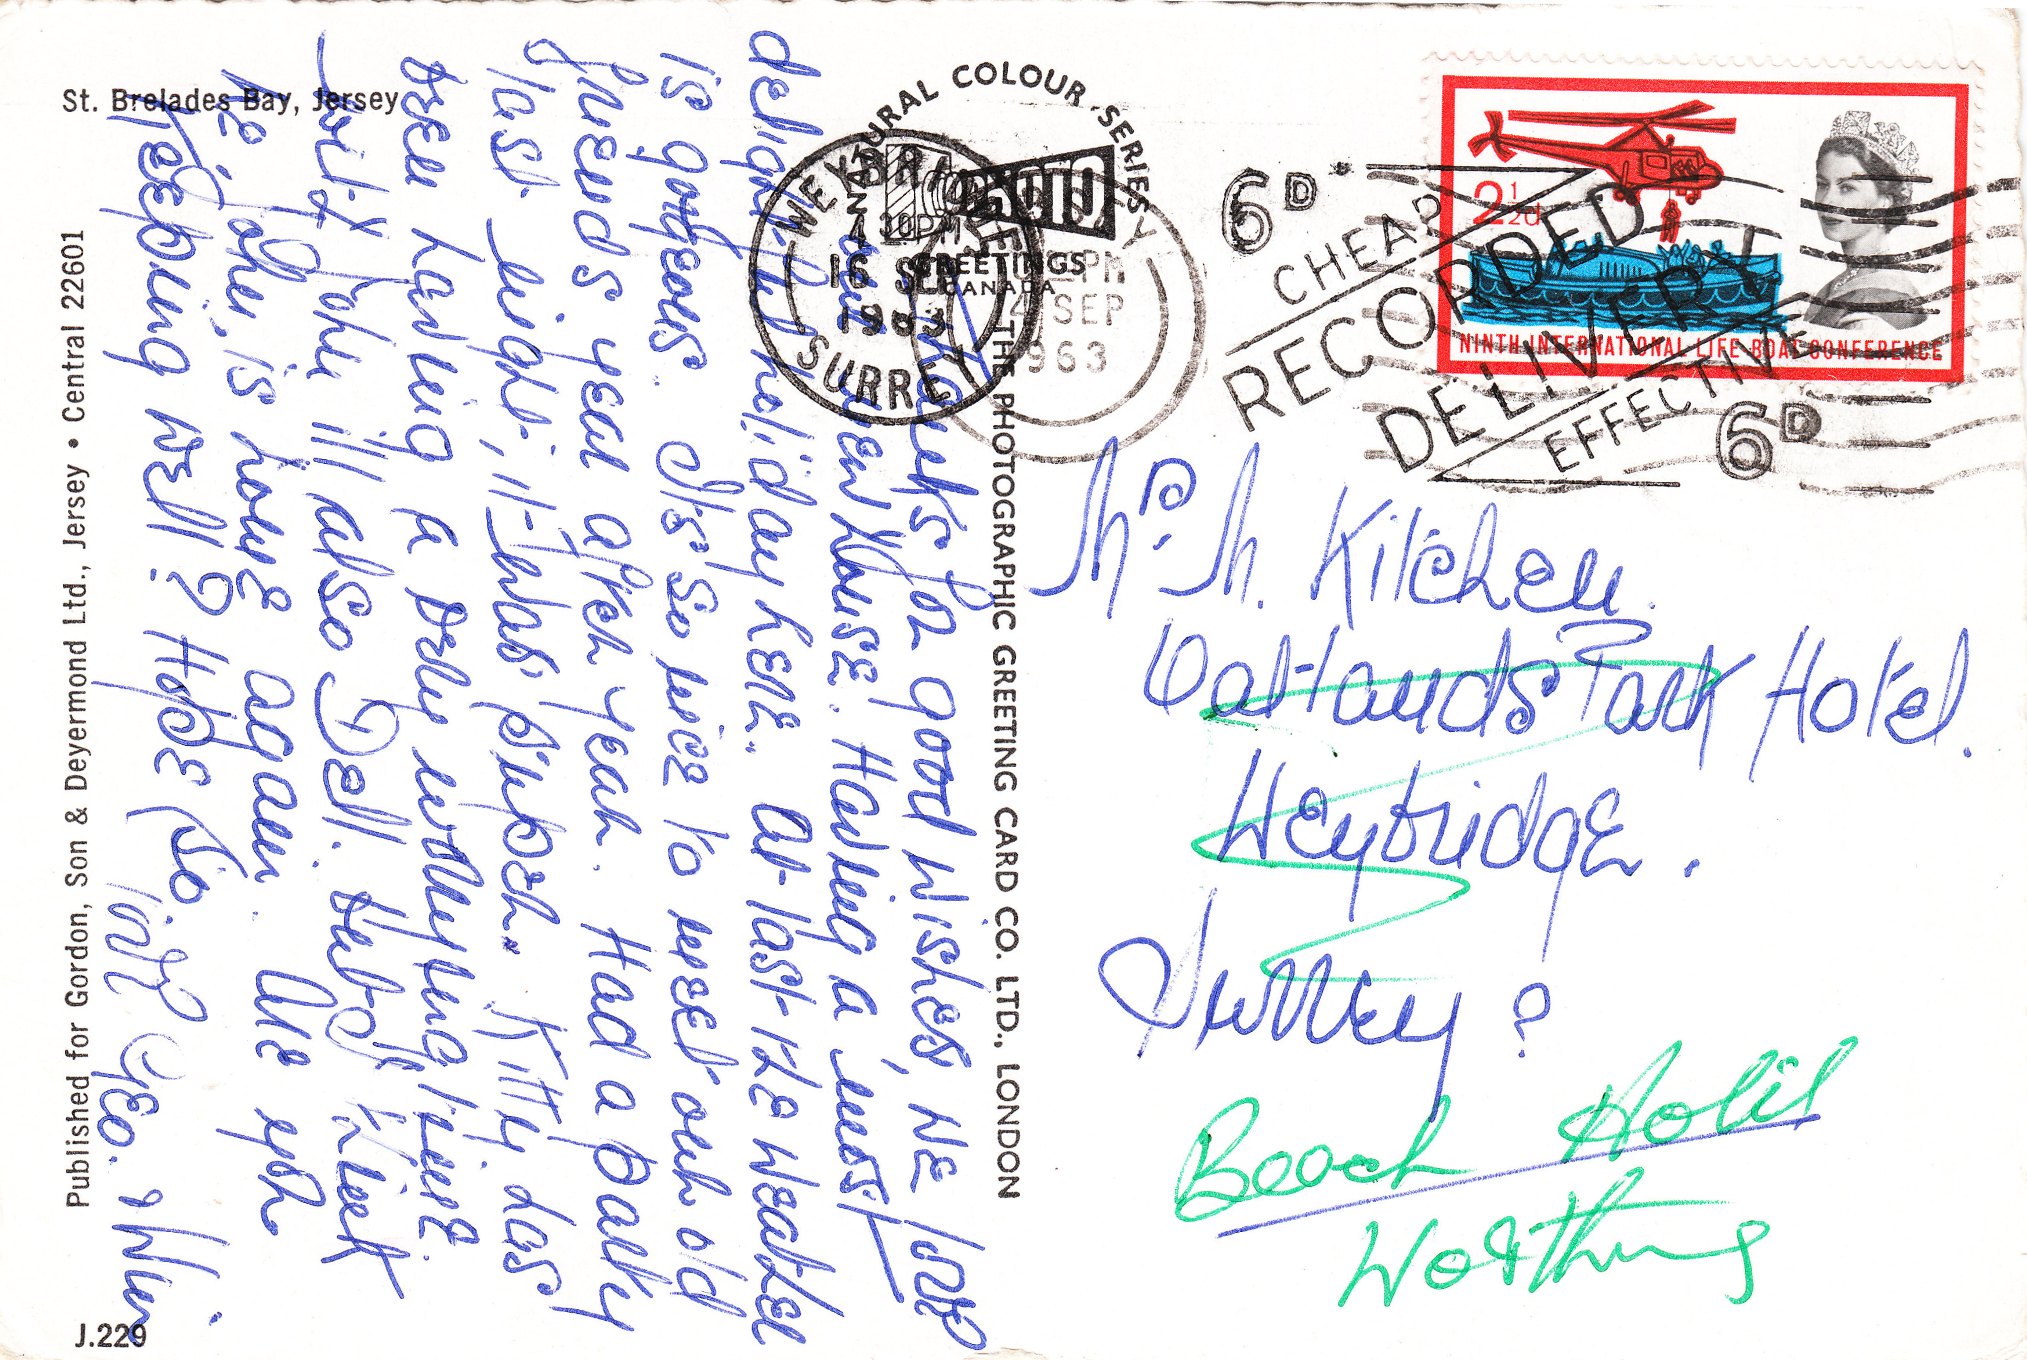 St. Brelades Bay, Jersey
Published for Gordon, Son & Deyermond Ltd., Jersey • Central 22601
J.229
NATURAL COLOUR SERIES
GREETINGS
CANADA
THE PHOTOGRAPHIC GREETING CARD CO. LTD., LONDON
thanks for good wishes we love
our new house. Having a most
delightful holiday here. At last the weather
is gorgeous. It's so nice to meet our old
friends year after year. Had a party
last night, it was super. Kitty has
been having a very worrying time
with John ill also Dell.
he, John, is home again. Are you
keeping well? Hope so
Love Geo. & Win.
WEYBRIDGE
30PM
16 SEP
1963
SURREY
JERSEY
PM
4 SEP
1963
6D CHEAP
RECORDED
DELIVERY
EFFECTIVE 6D
2½d
NINTH INTERNATIONAL LIFE-BOAT CONFERENCE
Mr. M. Kitchen.
Oatlands Park Hotel.
Weybridge.
Surrey
Beach Hotel
Worthing